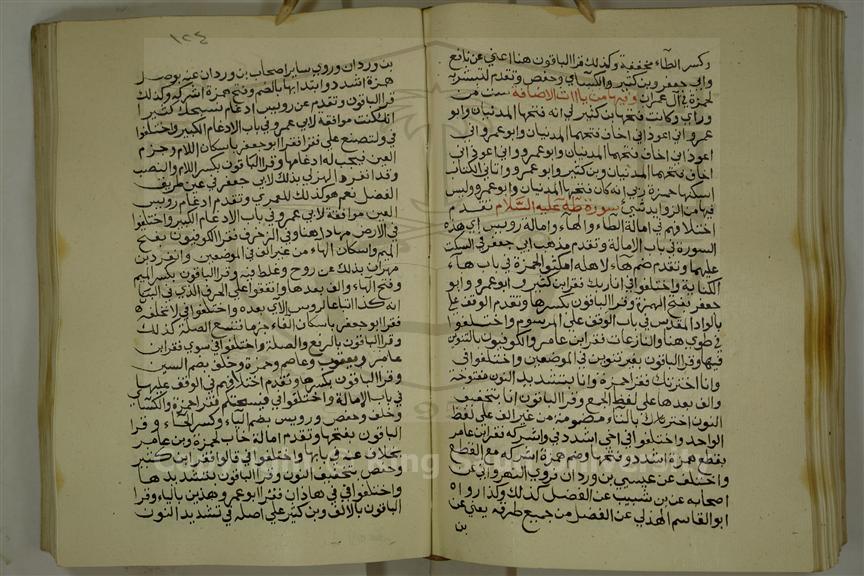 وكسر الطاء مخففة وكذلك قرأ الباقون هنا اعني عن نافع
وابي جعفر وبن كثير والكسائي وحفص وتقدم لتبشر به
لحمزة في آل عمران وفيها من ياات الاضافة ست من
وراي وكانت فتحها بن كثير لي اية فتحها المدنيان وابو
عمرو اني اعوذ اني اخاف فتحهما المدنيان وابو عمرو اني
اعوذ اني اخاف فتحهما المدنيان وابو عمرو واني اعوذ اني
اخاف فتحهما المدنيان وبن كثير وابو عمرو واتاني الكتاب
اسكنها حمزة ربي انه كان فتحها المدنيان وابو عمرو وليس
فيها من الزوايد شئ سورة طه عليه السلام تقدم
اختلافهم في امالة الطاء والهاء وامالة رويس اي هذه
السورة في باب الامالة وتقدم مذهب ابي جعفر في السكت
عليهما وتقدم ضم هاء لاهله امكثوا لحمزة في باب هاء
الكناية واختلفوا في اني اناربك فقرا بن كثير وابو عمرو وابو
جعفر بفتح الهمزة وقرا الباقون بكسرها وتقدم الوقف على
بالواد المقدس في باب الوقف على المرسوم واختلفوا
في طوي هنا والنازعات فقرا بن عامر والكوفيون بالتنوين
فيهما وقرا الباقون بغير تنوين في الموضعين واختلفوا في
وانا اخترتك فقرا حمزة وانا بتشديد النون مفتوحة
والف بعدها على لفظ الجمع وقرا الباقون انا بتخفيف
النون اخترتك بالتاء مضمومة من غير الف على لفظ
الواحد واختلفوا في اخي اشدد بي واشركه فقرا بن عامر
بقطع همزة اشدد وفتحها وضم همزة اشركه مع القطع
واختلف عن عيسي بن وردان فروي النهرواني عن
اصحابه عن بن شبيب عن الفضل كذلك وكذا رواه
ابو القاسم الهذلي عن الفضل من جميع طرقه يعني عن
بن
١٢٤
بن وردان وروي ساير اصحاب بن وردان عنه بوصل
همزة اشدد وابتدابها بالضم وفتح همزة اشركه وكذلك
قرا الباقون وتقدم عن رويس ادغام نسبحك كثيرا
انك كنت موافقة لابي عمرو في باب الادغام الكبير واختلفوا
في ولتصنع على فقرا ابو جعفر باسكان اللام وجزم
العين فيجب له ادغامها وقرا الباقون بكسر اللام والنصب
وقد انفرد الهذلي بذلك لابي جعفر في غير طريق
الفضل نعم هو كذلك للعمري وتقدم ادغام رويس
العين موافقة لابي عمرو في باب الادغام الكبير واختلفوا
في الارض مهادا هنا وفي الزخرف فقرا الكوفيون بفتح
الميم واسكان الهاء من غير الف في الموضعين وانفرد بن
مهران بذلك عن روح وغلط فيه وقرا الباقون بكسر الميم
وفتح الهاء والف بعدها واتفقوا على الحرف الذي في النبا
انه كذا اتباعا لروس الاي بعده واختلفوا في لا نخلفه
فقرا ابو جعفر باسكان الفاء جزما فتمتنع الصلة كذلك
وقرا الباقون بالرفع والصلة واختلفوا في سوي فقرا بن
عامر ويعقوب وعاصم وحمزة وخلف بضم السين
وقرا الباقون بكسرها وتقدم اختلافهم في الوقف عليها
في باب الامالة واختلفوا في فيسحتكم فقرا حمزة والكسائي
وخلف وحفص ورويس بضم الياء وكسر الحاء وقرا
الباقون بفتحهما وتقدم امالة خاب لحمزة وبن عامر
بخلاف عنه في بابها واختلفوا في قالوا ان فقرا بن كثير
وحفص بتخفيف النون وقرا الباقون بتشديدها
واختلفوا في هاذان فقرا ابو عمرو وهذين بالياء وقرا
الباقون بالالف وبن كثير على اصله في تشديد النون